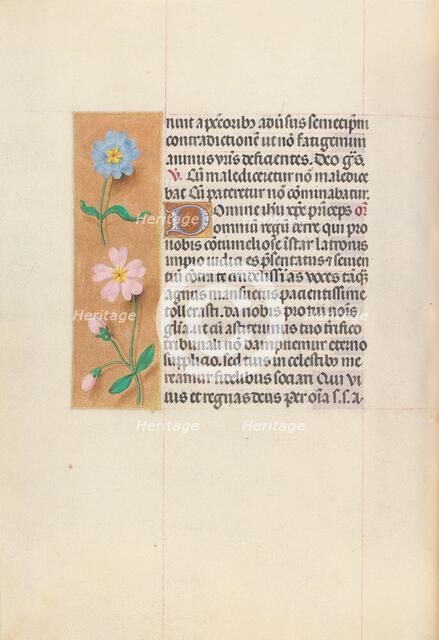 nunt a pctoribꝫ adūsus semetipm
contradictionem ut nō fatigemini
animus vrīs deficientes. Deo grās.
V. Cū malediceretur nō maledice
bat Cū pateretur nō cominabatur.
Domine ihū xpe princeps or
omniū regum terre qui pro
nobis cōtumeliose istar latronis
impio iudici es pñsentatus et semen
tiū cōtra te crudelissīas voces tāqꝫ
agnus mansuetus pacientissime
tollerasti. da nobis pro tui noīs
glīa ut cū asteterimus tuo tirifico
tribunali nō dampnemur eterno
supplicio. sed tuis in celestibus me
reamur fidelibus sociari Qui vi
uis et regnas deus per oīa s.s.A.
Heritage
Heritage
Heritage
Heritage
Heritage
Heritage